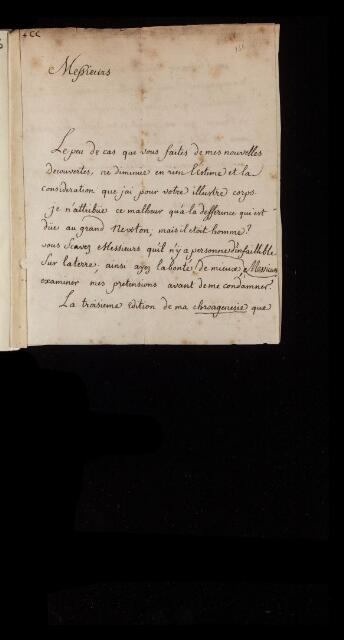 Messieurs
Le peu de cas que vous faites de mes nouvelles
decouvertes, ne diminue en rien l'estime et la
consideration que jai pour votre illustre corps.
je n'attribue ce malheur qu'à la defference qui est
düe au grand Newton, mais il etoit homme!
vous scavez Messieurs qu'il n'y a personne d'infaillible
sur la terre, ainsi ayez la bonté, de mieux, Messieurs
examiner mes pretensions avant de me condamner.
La troisieme edition de ma chroagenesie que